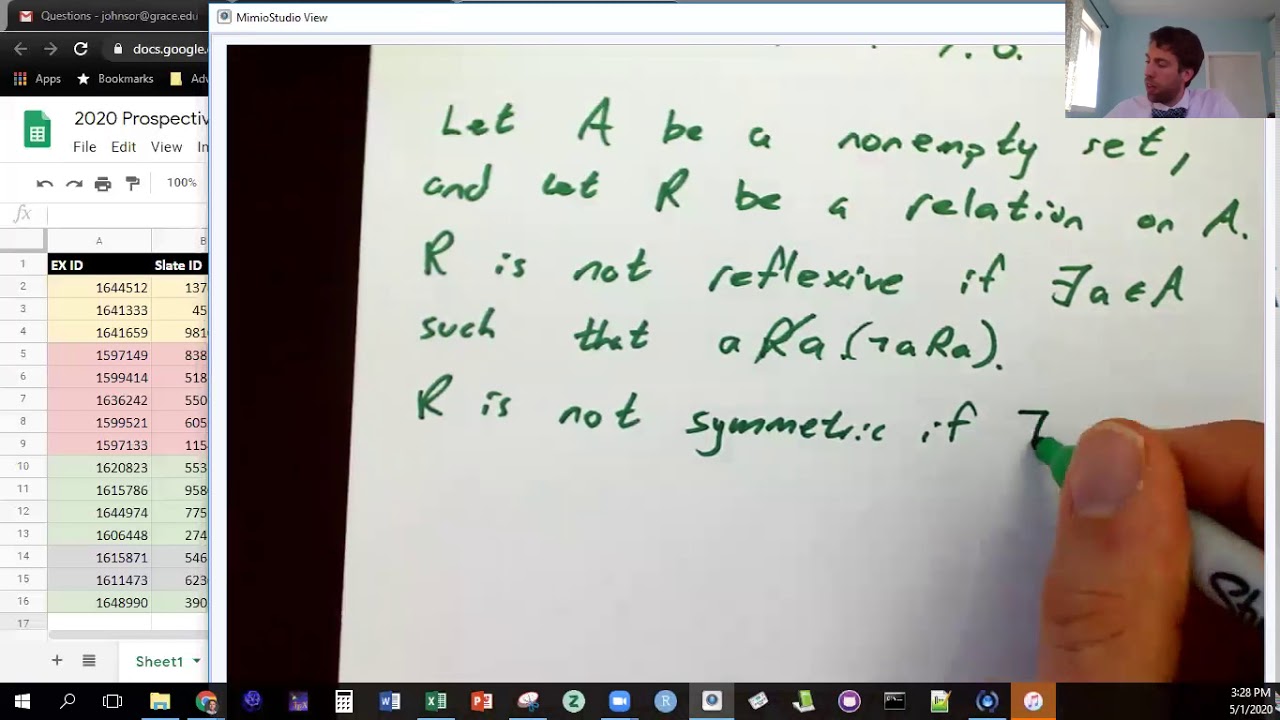 Questions - johnsor@grace.edu
MimioStudio View
docs.google.c
Apps
Bookmarks
Adv
2020 Prospectiv
File Edit View In
100%
fx
A B
1 EX ID Slate ID
2 1644512 137
3 1641333 45
4 1641659 981
5 1597149 838
6 1599414 518
7 1636242 550
8 1599521 605
9 1597133 115
10 1620823 553
11 1615786 958
12 1644974 775
13 1606448 274
14 1615871 546
15 1611473 623
16 1648990 390
17
Sheet1
Let A be a nonempty set,
and let R be a relation on A.
R is not reflexive if ∃a∈A
such that a R̸ a (¬aRa).
R is not symmetric if
3:28 PM
5/1/2020